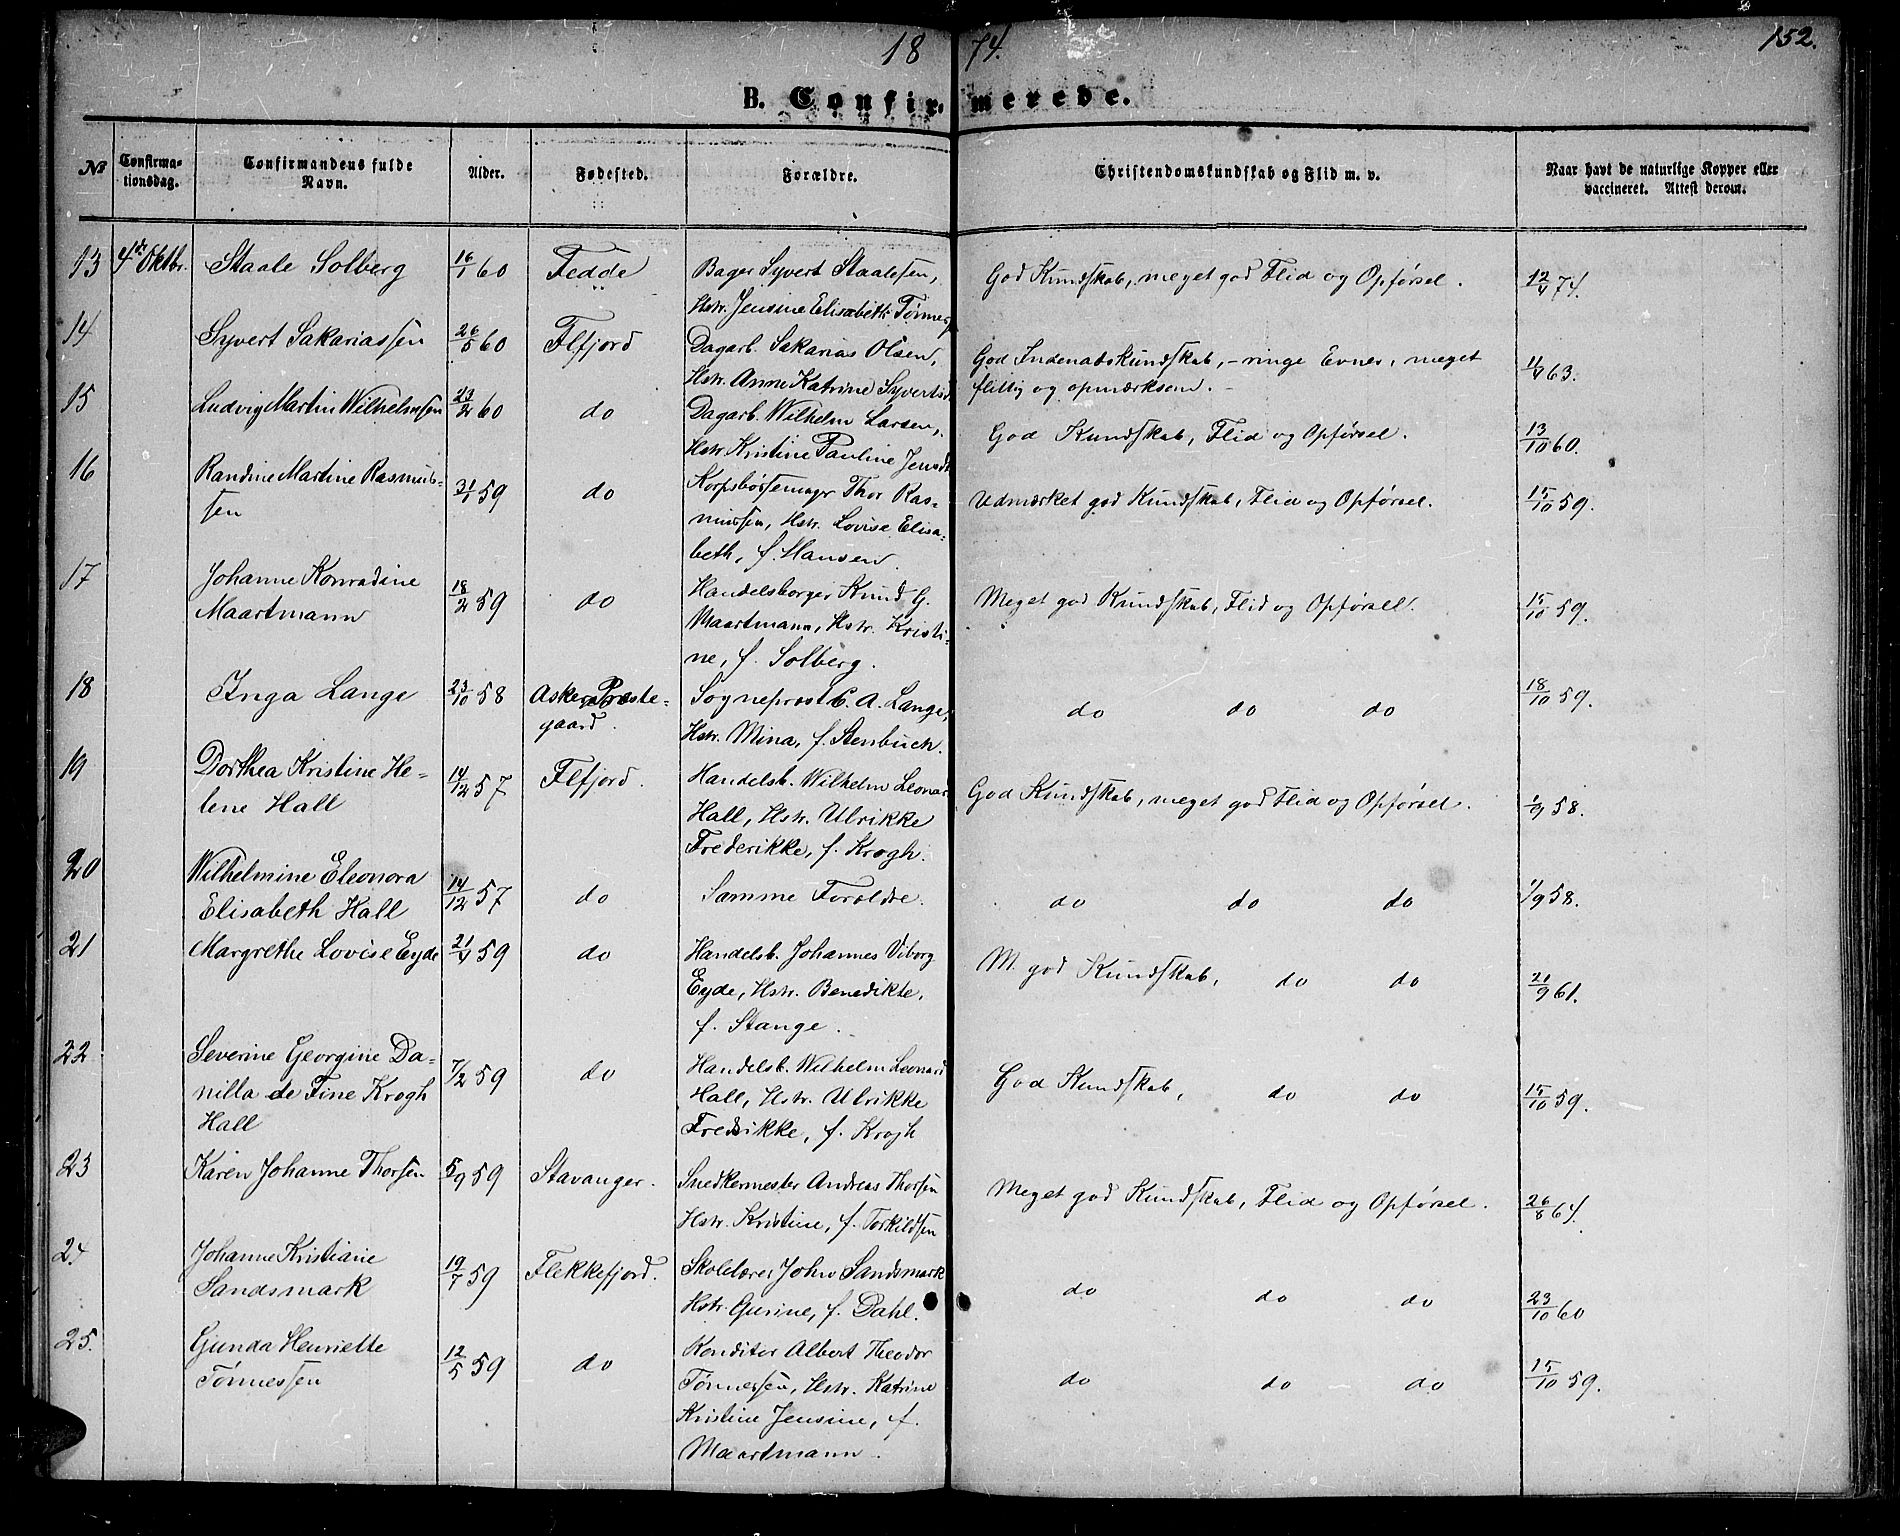 18 74. 152.
B. Confirmerede.
No Confirmationsdag. Confirmandens fulde Navn. Alder. Fødested. Forældre. Christendomskundskab og Flid m. v. Naar havt de naturlige Kopper eller vaccineret. Attest derom.
13 4de Oktbr. Staale Solberg 16/1 60 Fedde Bager Syvert Staalesen, God Kundskab, meget god Flid og Opførsel. 12/4 74.
Hstr. Jensine Elisabeth Tørnes
14 Syvert Sakariassen 26/5 60 Flfjord Dagarb. Sakarias Olsen, God Indenadskundskab, - ringe Evner, meget 63.
Hstr. Anne Katrine Syvertsd flittig og opmærksom. -
15 Ludvig Martin Wilhelmsen 23/2 60 do Dagarb. Wilhelm Larsen, God Kundskab, Flid og Opførsel. 13/10 60.
Hstr. Kristine Pauline Jensd
16 Randine Martine Rasmus- 31/1 59 do Korpsbøssemager Thor Ras- Udmærket god Kundskab, Flid og Opførsel. 15/10 59.
sen mussen, Hstr. Lovise Elisa-
beth, f. Hansen.
17 Johanne Konradine 18/2 59 do Handelsborger Knud G. Meget god Kundskab, Flid og Opførsel. 15/10 59.
Maartmann Maartmann, Hstr. Kristi-
ne, f. Solberg.
18 Inga Lange 23/10 58 Asker Præste- Sogneprest C. A. Lange, do do do 18/10 59.
gaard. Hstr. Mina, f. Stenbuch.
19 Dorthea Kristine He- 14/12 57 Flfjord. Handelsb. Wilhelm Leonar God Kundskab, meget god Flid og Opførsel. 1/9 58.
lene Hall Hall, Hstr. Ulrikke
Frederikke, f. Krogh.
20 Wilhelmine Eleonora 14/12 57 do Samme Foroldre. do do do 1/9 58.
Elisabeth Hall
21 Margrethe Lovise Eyde 21/4 59 do Handelsb. Johannes Viborg M. god Kundskab, do do 21/9 61.
Eyde, Hstr. Benedikte,
f. Stange.
22 Severine Georgine Da- 7/2 59 do Handelsb. Wilhelm Leonard God Kundskab, do do 15/10 59.
nilla de Fine Krogh Hall, Hstr. Ulrikke
Hall Fredrikke, f. Krogh
23 Karen Johanne Thorsen 5/9 59 Stavanger. Snedkermester Andreas Thorsen Meget god Kundskab, Flid og Opførsel. 26/8 64.
Hstr. Kristine, f. Torkildsen
24 Johanne Kristiane 19/7 59 Flekkefjord. Skolelærer John Sandsmark do do do 23/10 60
Sandsmark Hstr. Gurine, f. Dahl.
25. Gunda Henriette 12/5 59 do Konditor Albert Theodor do do do 15/10 59.
Tørnessen Tønnessen, Hstr. Katrine
Kristine Jensine, f.
Maartmann.